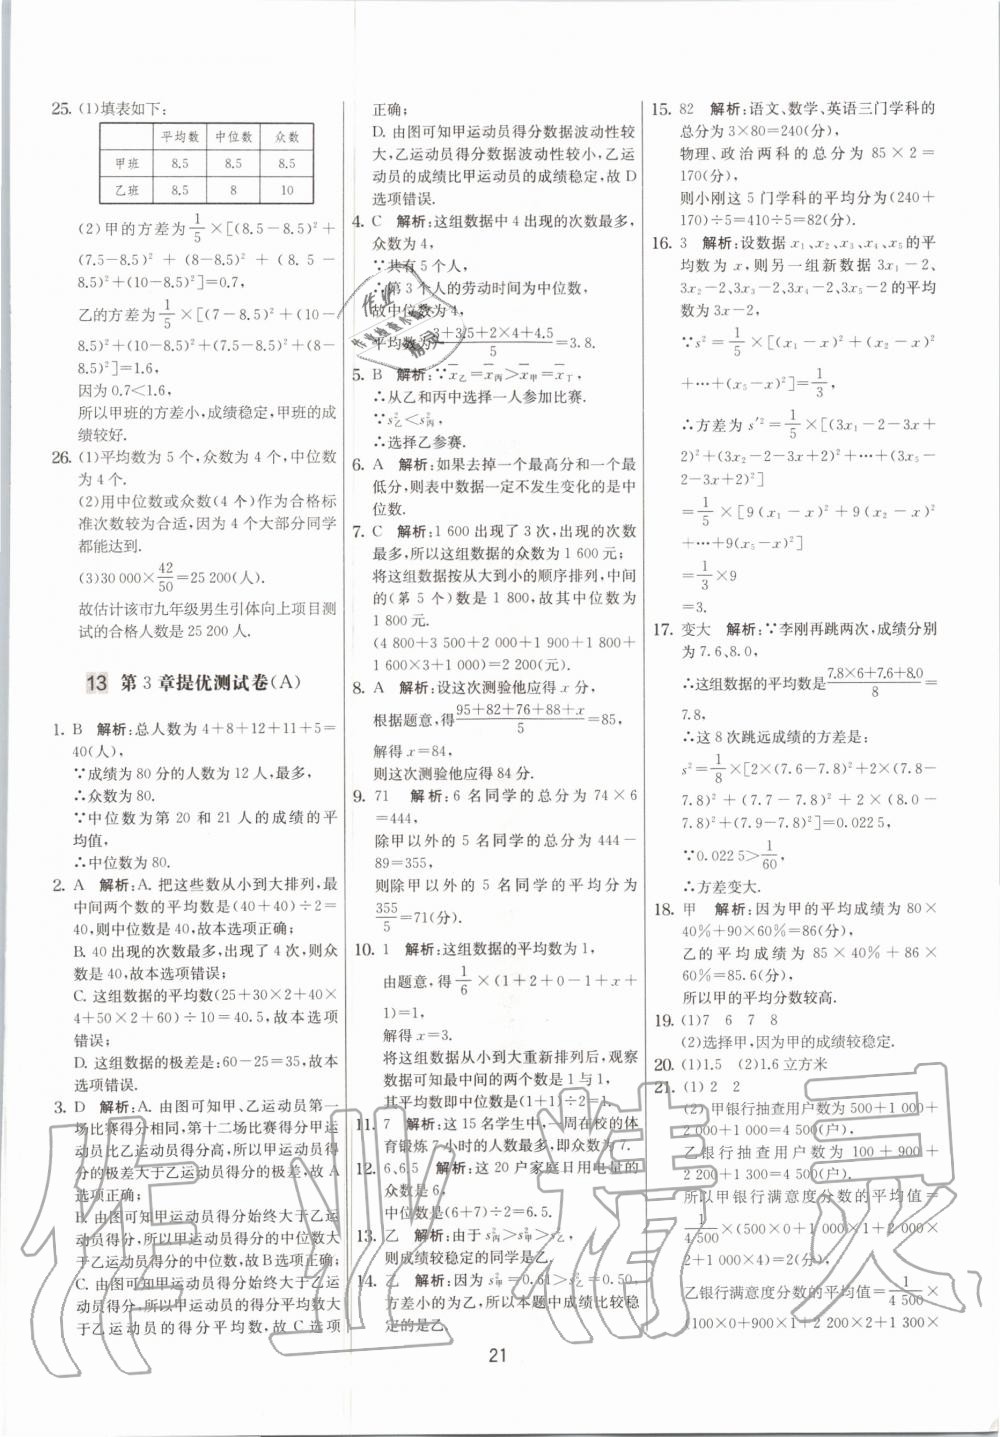 25. (1)填表如下:
平均数 中位数 众数
甲班 8.5 8.5 8.5
乙班 8.5 8 10
(2)甲的方差为1/5×[(8.5-8.5)²+
(7.5-8.5)²+(8-8.5)²+(8.5-
8.5)²+(10-8.5)²]=0.7,
乙的方差为1/5×[(7-8.5)²+(10-
8.5)²+(8-8.5)²+(7.5-8.5)²+(8-
8.5)²]=1.6,
因为0.7<1.6,
所以甲班的方差小,成绩稳定,甲班的成
绩较好.
26. (1)平均数为5个,众数为4个,中位数
为4个.
(2)用中位数或众数(4个)作为合格标
准次数较为合适,因为4个大部分同学
都能达到.
(3)30 000×42/50=25 200(人).
故估计该市九年级男生引体向上项目测
试的合格人数是25 200人.
13 第3章提优测试卷(A)
1. B 解析:总人数为4+8+12+11+5=
40(人),
∵成绩为80分的人数为12人,最多,
∴众数为80.
∵中位数为第20和21人的成绩的平
均值,
∴中位数为80.
2. A 解析:A. 把这些数从小到大排列,最
中间两个数的平均数是(40+40)÷2=
40,则中位数是40,故本选项正确;
B. 40出现的次数最多,出现了4次,则众
数是40,故本选项错误;
C. 这组数据的平均数(25+30×2+40×
4+50×2+60)÷10=40.5,故本选项
错误;
D. 这组数据的极差是:60-25=35,故本
选项错误.
3. D 解析:A. 由图可知甲、乙运动员第一
场比赛得分相同,第十二场比赛得分甲运
动员比乙运动员得分高,所以甲运动员得分
的极差大于乙运动员得分的极差,故A
选项正确;
B. 由图可知甲运动员得分始终大于乙运
动员得分,所以甲运动员得分的中位数大
于乙运动员得分的中位数,故B选项正确;
C. 由图可知甲运动员得分始终大于乙运
动员得分,所以甲运动员的得分平均数大
于乙运动员的得分平均数,故C选项
正确;
D. 由图可知甲运动员得分数据波动性较
大,乙运动员得分数据波动性较小,乙运
动员的成绩比甲运动员的成绩稳定,故D
选项错误.
4. C 解析:这组数据中4出现的次数最多,
众数为4,
∵共有5个人,
∴第3个人的劳动时间为中位数,
故中位数为4,
平均数为(3+3.5+2×4+4.5)/5=3.8.
5. B 解析:∵x̄乙=x̄丙>x̄甲=x̄丁,
∴从乙和丙中选择一人参加比赛.
∵s²乙<s²丙,
∴选择乙参赛.
6. A 解析:如果去掉一个最高分和一个最
低分,则表中数据一定不发生变化的是中
位数.
7. C 解析:1 600出现了3次,出现的次数
最多,所以这组数据的众数为1 600元;
将这组数据按从大到小的顺序排列,中间
的(第5个)数是1 800,故其中位数为
1 800元.
(4 800+3 500+2 000+1 900+1 800+
1 600×3+1 000)÷9=2 200(元).
8. A 解析:设这次测验他应得x分,
根据题意,得(95+82+76+88+x)/5=85,
解得x=84,
则这次测验他应得84分.
9. 71 解析:6名同学的总分为74×6
=444,
除甲以外的5名同学的总分为444-
89=355,
则除甲以外的5名同学的平均分为
355/5=71(分).
10. 1 解析:这组数据的平均数为1,
由题意,得1/6×(1+2+0-1+x+
1)=1,
解得x=3.
将这组数据从小到大重新排列后,观察
数据可知最中间的两个数是1与1,
其平均数即中位数是(1+1)÷2=1.
11. 7 解析:这15名学生中,一周在校的体
育锻炼7小时的人数最多,即众数为7.
12. 6、6.5 解析:这20户家庭日用电量的
众数是6,
中位数是(6+7)÷2=6.5.
13. 乙 解析:由于s²丙>s²甲>s²乙,
则成绩较稳定的同学是乙.
14. 乙 解析:因为s²甲=0.61>s²乙=0.50,
方差小的为乙,所以本题中成绩比较稳
定的是乙.
15. 82 解析:语文、数学、英语三门学科的
总分为3×80=240(分),
物理、政治两科的总分为85×2=
170(分),
则小刚这5门学科的平均分为(240+
170)÷5=410÷5=82(分).
16. 3 解析:设数据x₁、x₂、x₃、x₄、x₅的平
均数为x,则另一组新数据3x₁-2、
3x₂-2、3x₃-2、3x₄-2、3x₅-2的平均
数为3x-2,
∵s²=1/5×[(x₁-x)²+(x₂-x)²
+…+(x₅-x)²]=1/3,
∴方差为s′²=1/5×[(3x₁-2-3x+
2)²+(3x₂-2-3x+2)²+…+(3x₅-
2-3x+2)²]
=1/5×[9(x₁-x)²+9(x₂-x)²
+…+9(x₅-x)²]
=1/3×9
=3.
17. 变大 解析:∵李刚再跳两次,成绩分别
为7.6、8.0,
∴这组数据的平均数是(7.8×6+7.6+8.0)/8=
7.8,
∴这8次跳远成绩的方差是:
s²=1/8×[2×(7.6-7.8)²+2×(7.8-
7.8)²+(7.7-7.8)²+2×(8.0-
7.8)²+(7.9-7.8)²]=0.022 5,
∵0.022 5>1/60,
∴方差变大.
18. 甲 解析:因为甲的平均成绩为80×
40%+90×60%=86(分),
乙的平均成绩为85×40%+86×
60%=85.6(分),
所以甲的平均分数较高.
19. (1)7 6 7 8
(2)选择甲,因为甲的成绩较稳定.
20. (1)1.5 (2)1.6立方米
21. (1)2 2
(2)甲银行抽查用户数为500+1 000+
2 000+1 000=4 500(户),
乙银行抽查用户数为100+900+
2 200+1 300=4 500(户).
所以甲银行满意度分数的平均值=
1/4 500×(500×0+1 000×1+2 000×
2+1 000×4)=2(分),
乙银行满意度分数的平均值=1/4 500×
(100×0+900×1+2 200×2+1 300×
21
作业
作业检查小助手
精灵
作业精灵